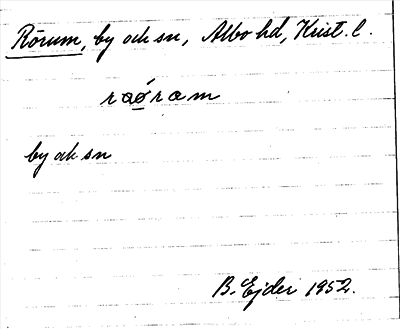 Rörum, by och sn, Albo hd, Krist. l.
raǿram
by och sn
B. Ejder 1952.